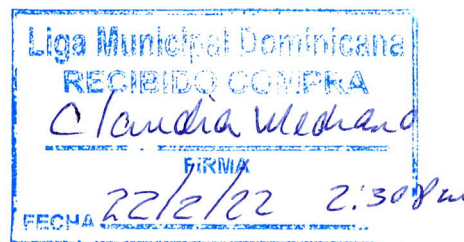 Liga Municipal Dominicana
RECIBIDO COMPRA
Claudia Medrano
FIRMA
FECHA 22/2/22 2:30 pm